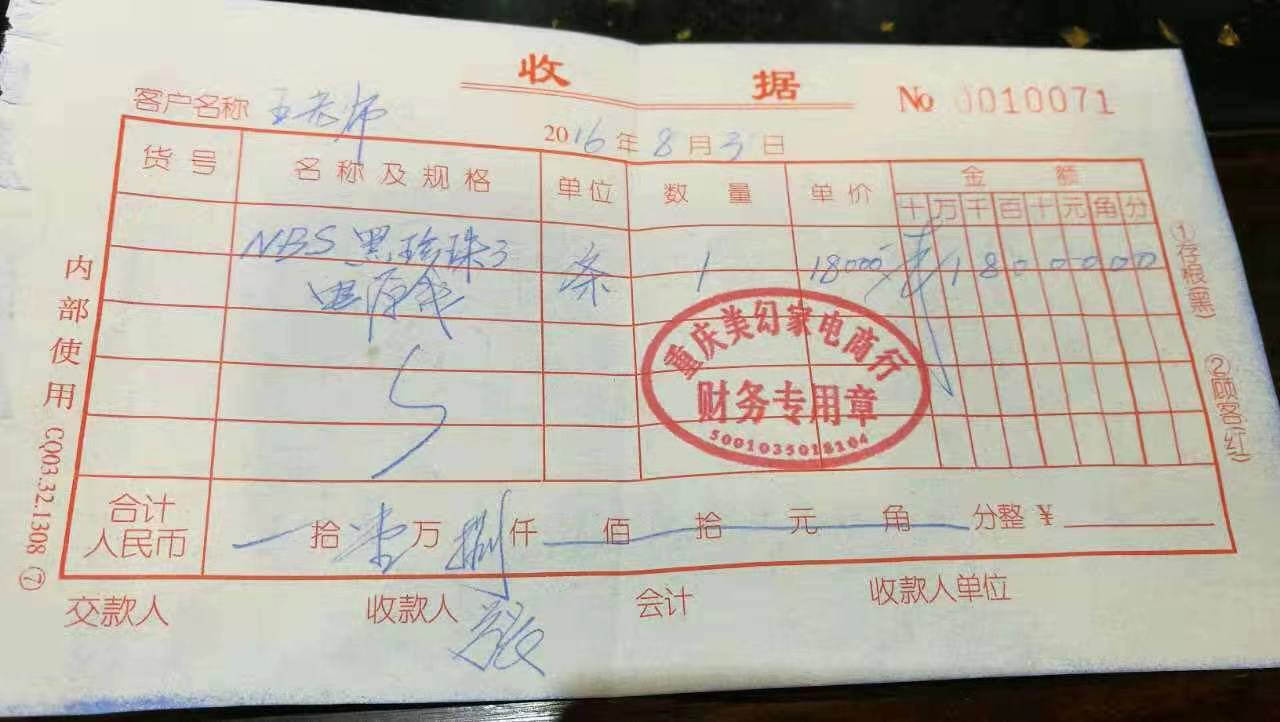 收 据
№ 0010071
客户名称 王老师
2016年8月3日
货号 名称及规格 单位 数量 单价 金额
十 万 千 百 十 元 角 分
NBS 黑珍珠3 条 1 18000元 1 8 0 0 0 0 0
电源线
重庆美幻家电商行
财务专用章
5001035018104
合计 一 拾 壹 万 捌 仟 佰 拾 元 角 分整 ¥
人民币
交款人 收款人 会计 收款人单位
内部使用 CQ03.32.1308 ⑦
①存根(黑) ②顾客(红)